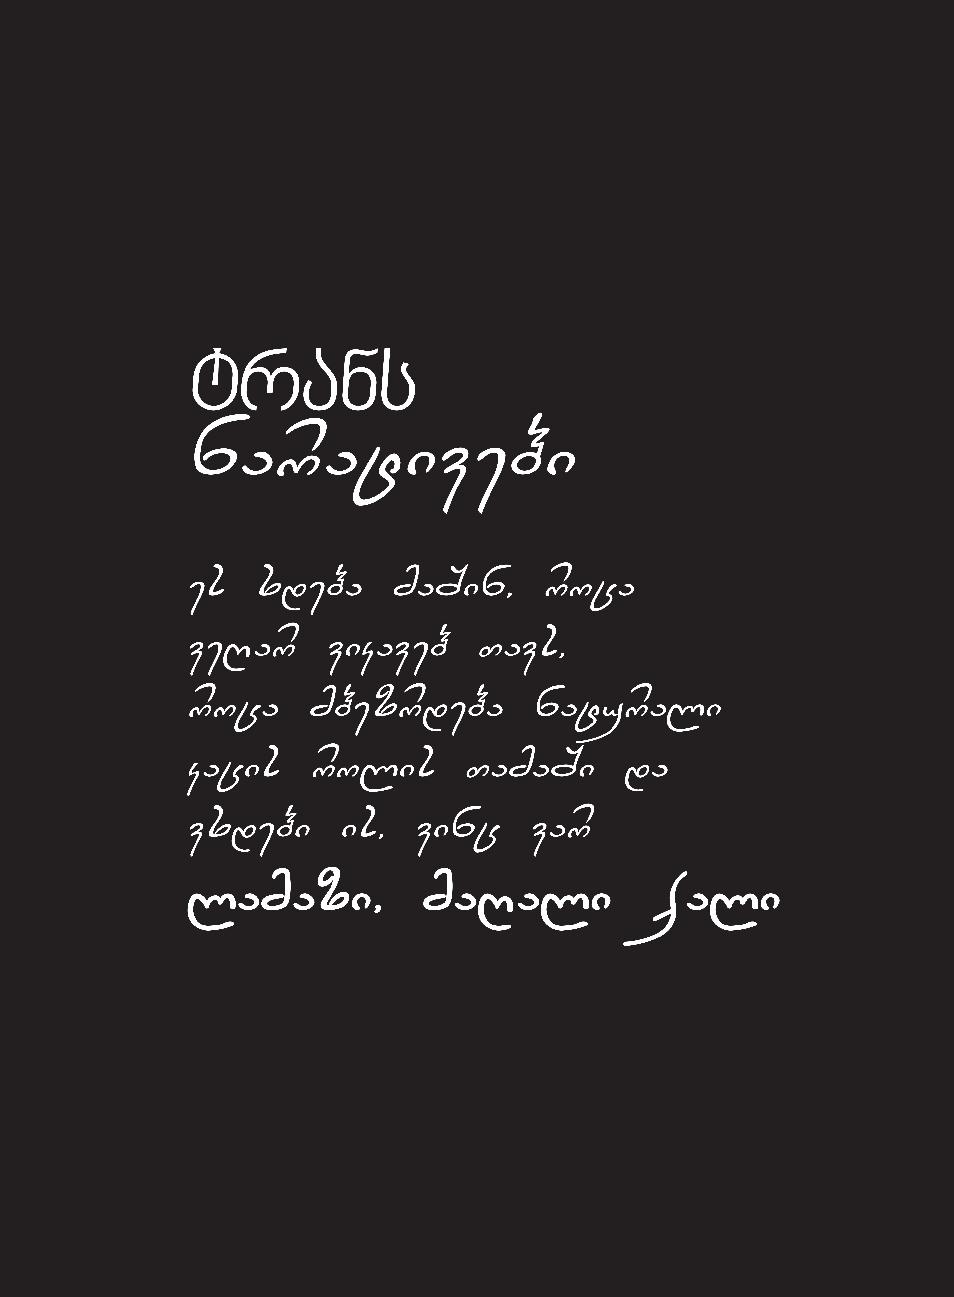 ტრანს
ნარატივები
ეს ხდება მაშინ, როცა
ველარ ვიკავებ თავს,
როცა მბეზრდება ნატყრალი
კაცის როლის თამაში და
ვხდები ის, ვინც ვარ
ლამაზი, მაღალი ქალი